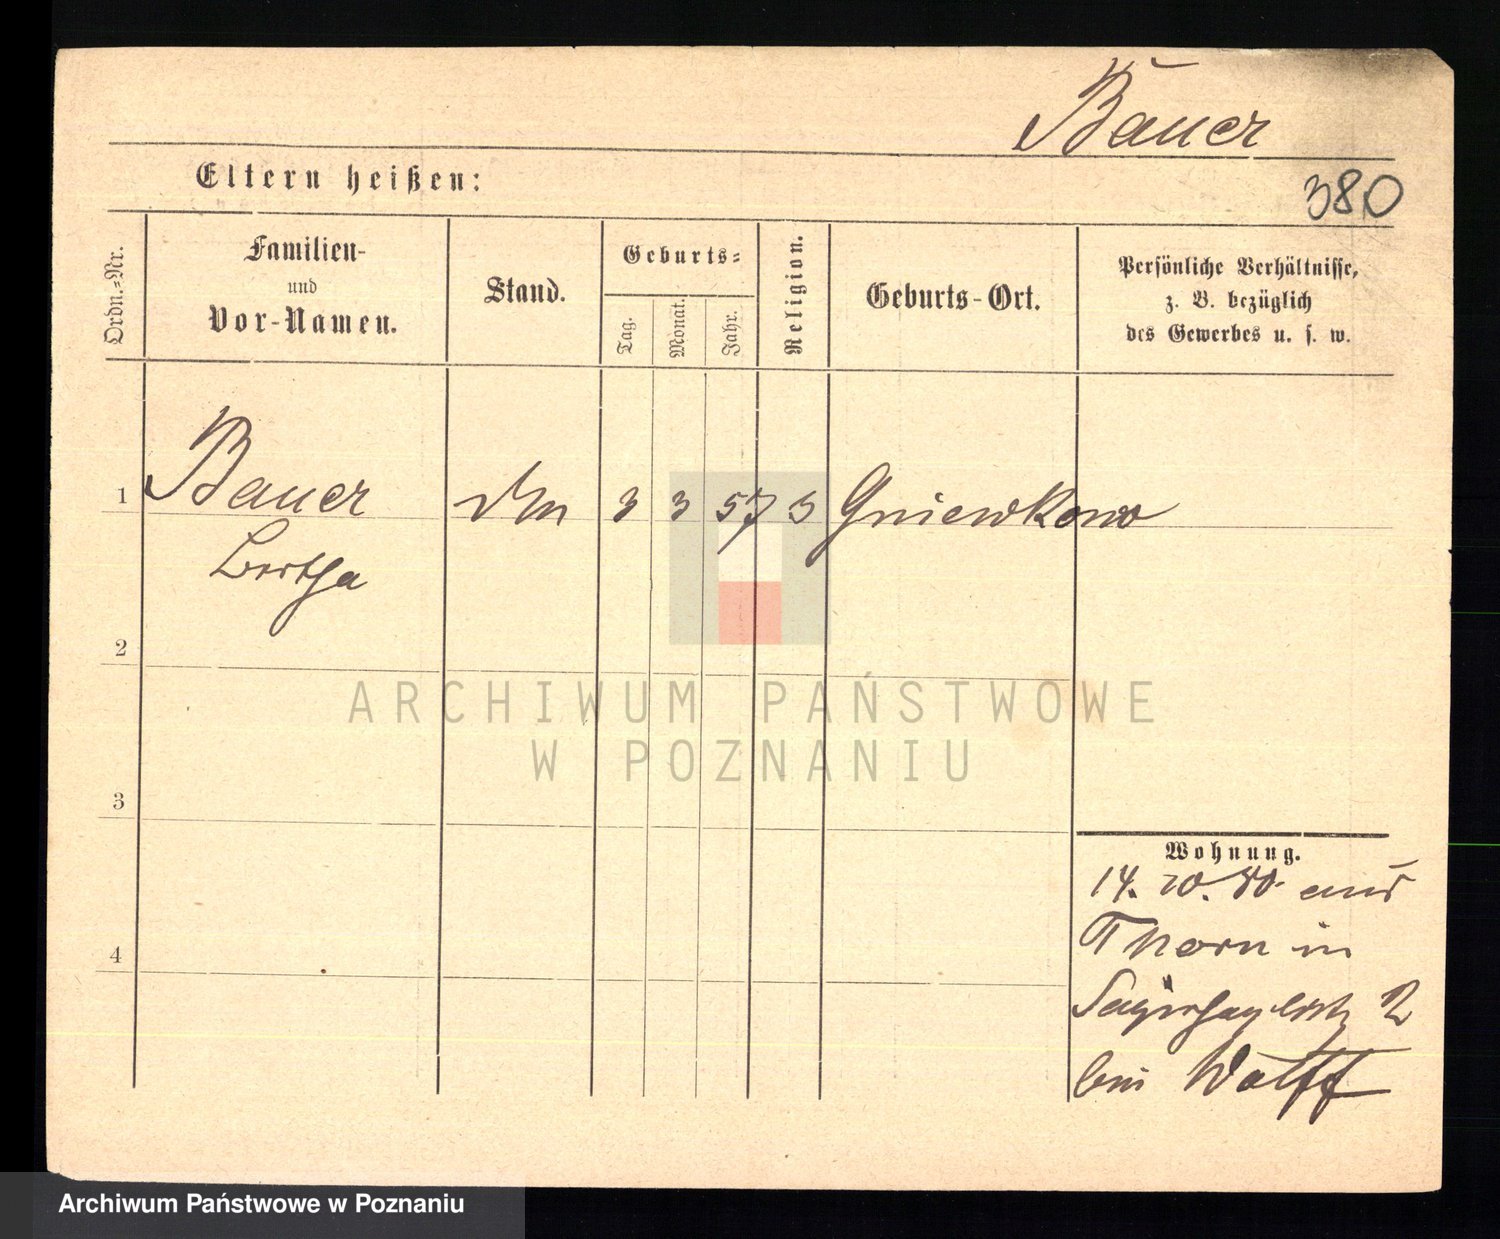 Bauer
Eltern heißen:
380
Ordn.=Nr.
Familien-
und
Vor-Namen.
Stand.
Geburts=
Tag.
Monat.
Jahr.
Religion.
Geburts-Ort.
Persönliche Verhältnisse,
z. B. bezüglich
des Gewerbes u. s. w.
1 Bauer 3 3 57 Gniewkowo
Bertha
2
ARCHIWUM PAŃSTWOWE
W POZNANIU
3
4
Wohnung.
14. 10. 80. aus
Thorn in
2
bei Wolff
Archiwum Państwowe w Poznaniu